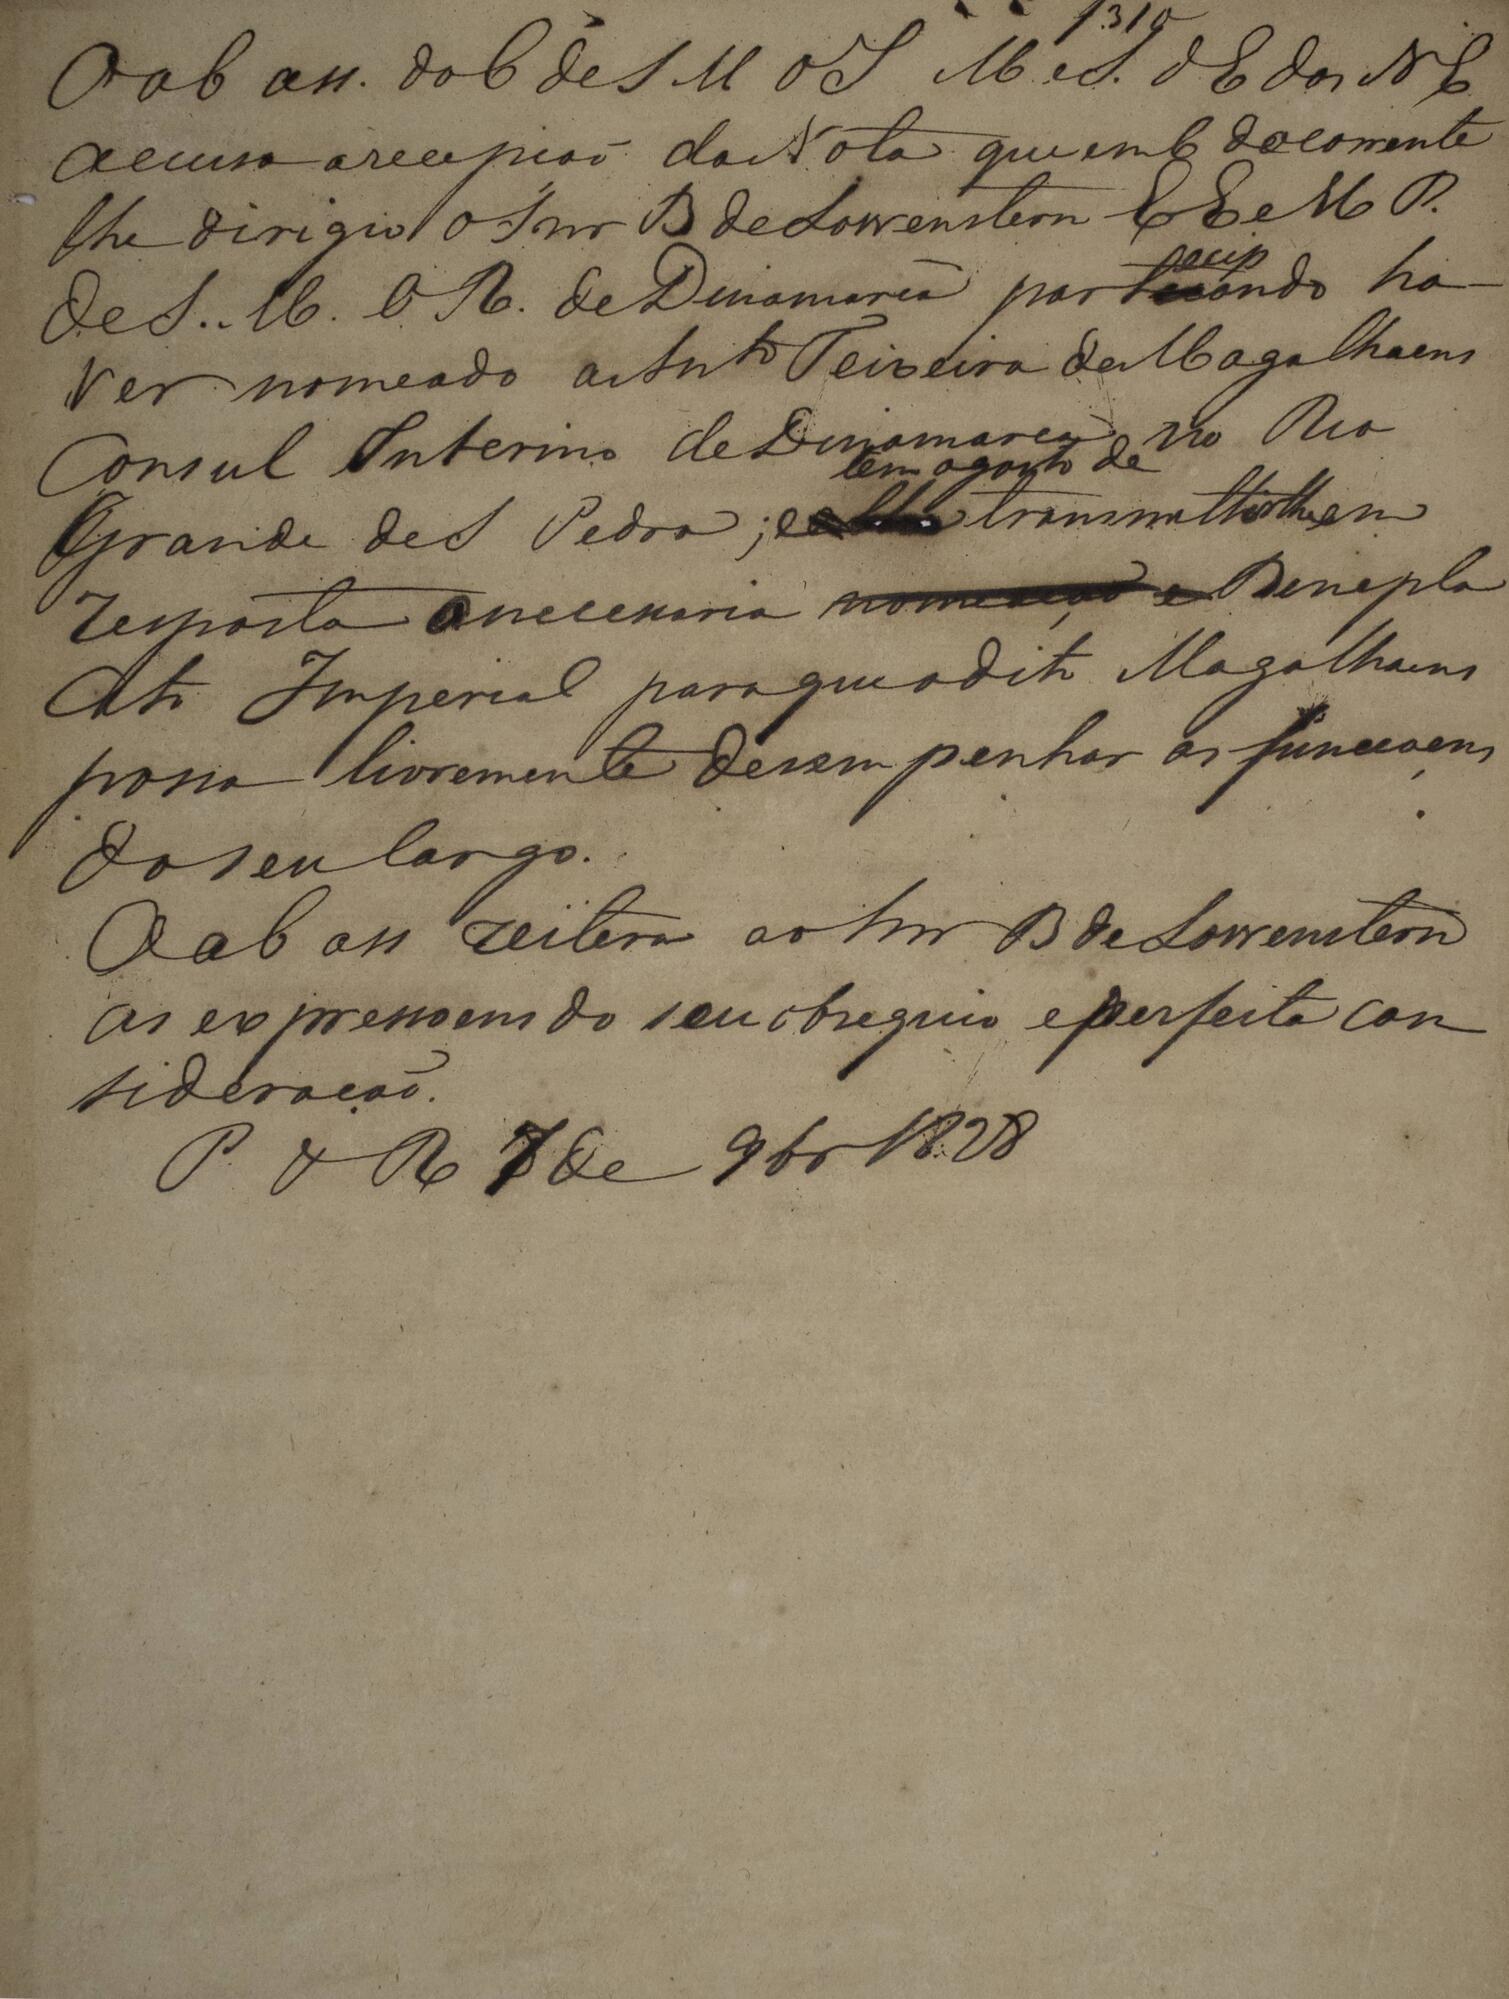 1310
O ab ass. do C de S M O I M e S. d E dos N E
accusa a recepção da Nota que em 6 do corrente
lhe dirigio o Snr B de Lowenstern E E e M P.
de S. M. E R. de Dinamarca participando ha-
ver nomeado a Anto Teixeira de Magalhaens
Consul Interino de Dinamarca no Rio
Grande de S Pedro; e tem agosto de transmittir lhe em
resposta o necessario nomeação e Benepla
cito Imperial para que o dito Magalhaens
possa livremente desempenhar as funcçoens
do seu Cargo.
O ab ass reitera ao Snr B de Lowenstern
as expressoens do seu obsequio e perfeita con
sideração.
P. d R 7 de 9br 1828